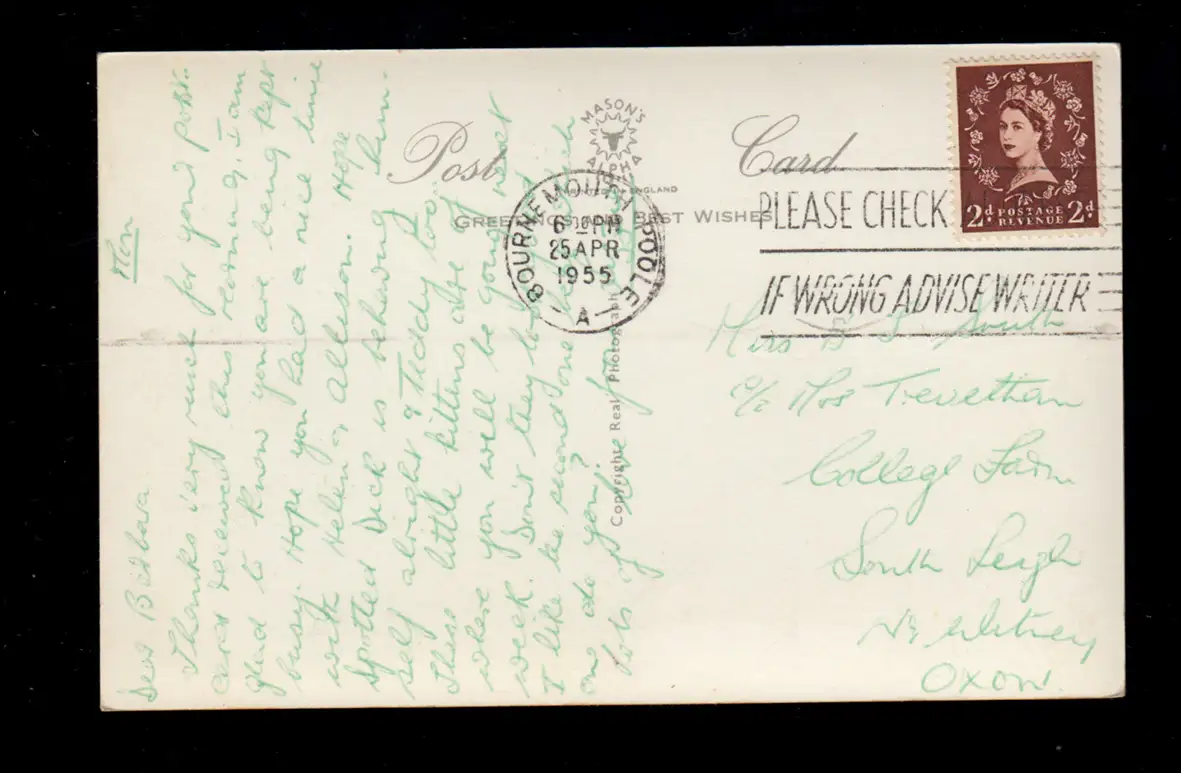 Post Card
MASON'S
ALPHA
ENGLAND
GREETINGS AND BEST WISHES
Copyright Real Photograph
BOURNEMOUTH POOLE
6 30 PM
25 APR
1955
A
PLEASE CHECK
IF WRONG ADVISE WRITER
2d POSTAGE REVENUE 2d
Mon
Dear Barbara
Thanks very much for your post-
card received this morning, I am
glad to know you are being kept
busy. Hope you had a nice time
with Helen & Allesson. Hope
Spotted Dick is behaving him-
self alright & Teddy too
These little kittens are of
where you will be going next
week. Don't they look good
I like the second one
one do you?
Lots of love
Miss B S South
c/o Mrs Trevethan
College Farm
South Leigh
Nr Witney
OXON.